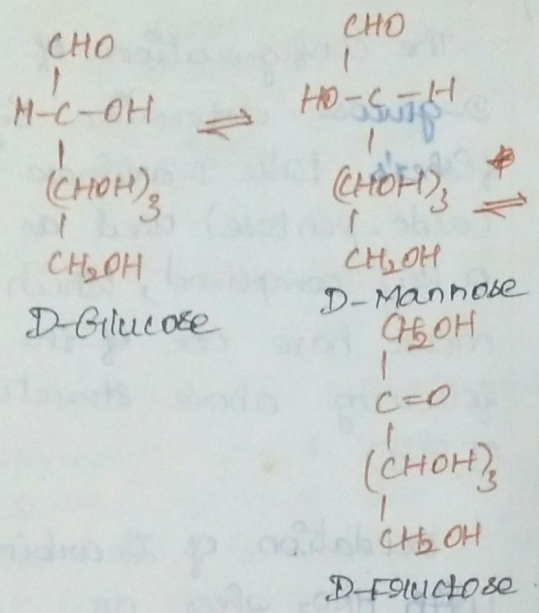 CHO
H-C-OH
(CHOH)3
CH2OH
D-Glucose
⇌
CHO
HO-C-H
(CHOH)3
CH2OH
D-Mannose
⇌
CH2OH
C=O
(CHOH)3
CH2OH
D-Fructose